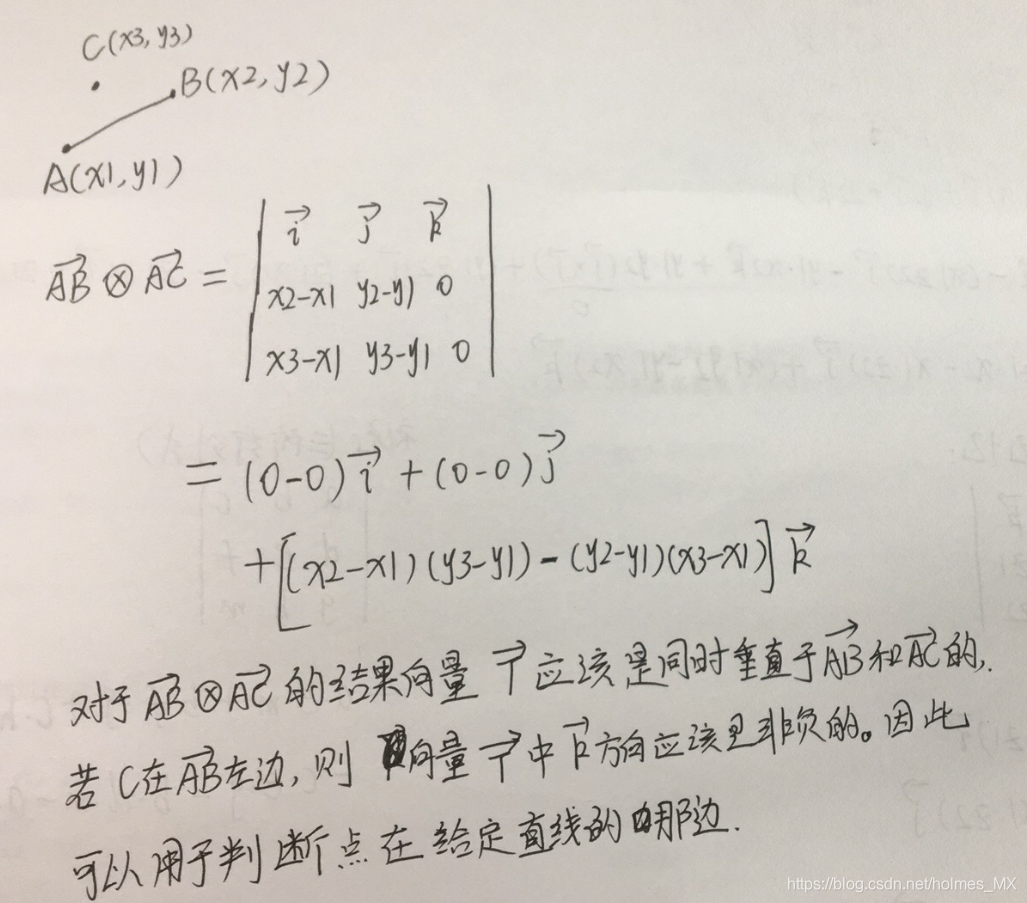 C(x3,y3)
B(x2,y2)
A(x1,y1)
→i →j →k
→AB ⊗ →AC = | x2-x1 y2-y1 0 |
x3-x1 y3-y1 0
= (0-0)→i + (0-0)→j
+[(x2-x1)(y3-y1) - (y2-y1)(x3-x1)]→k
对于→AB⊗→AC的结果向量 →T应该是同时垂直于→AB和→AC的,.
若C在→AB左边,则 向量→T中→k方向应该是非负的。因此
可以用于判断点在给定直线的那边.
https://blog.csdn.net/holmes_MX